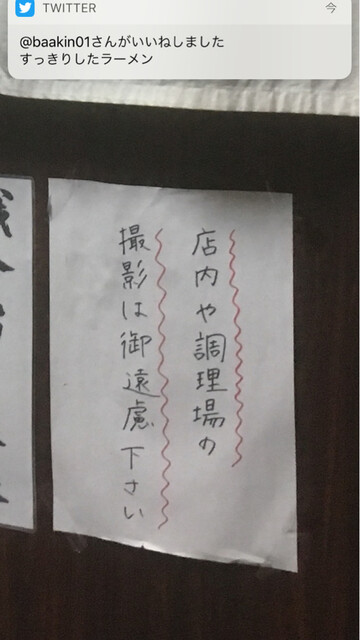 TWITTER
今
@baakin01さんがいいねしました
すっきりしたラーメン
店内や調理場の
撮影は御遠慮下さい